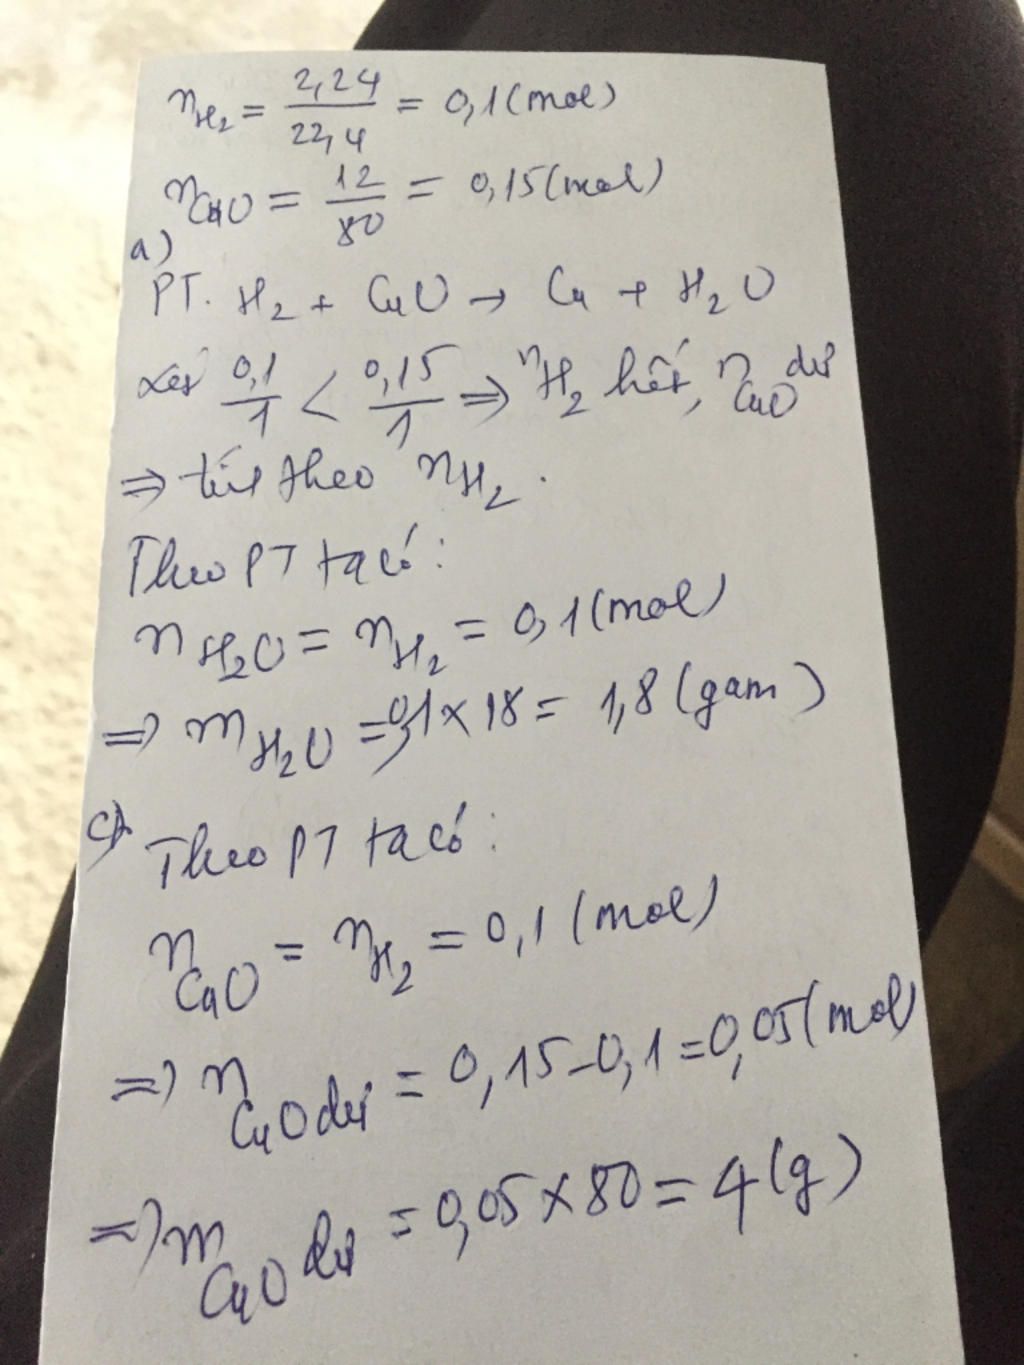 nH2 = 2,24/22,4 = 0,1 (mol)
nCuO = 12/80 = 0,15 (mol)
a)
PT. H2 + CuO → Cu + H2O
Xét 0,1/1 < 0,15/1 ⇒ nH2 hết, nCuO dư
⇒ tính theo nH2.
Theo PT ta có:
nH2O = nH2 = 0,1 (mol)
⇒ mH2O = 0,1 x 18 = 1,8 (gam)
c) Theo PT ta có:
nCuO = nH2 = 0,1 (mol)
⇒ nCuO dư = 0,15 - 0,1 = 0,05 (mol)
⇒ mCuO dư = 0,05 x 80 = 4 (g)